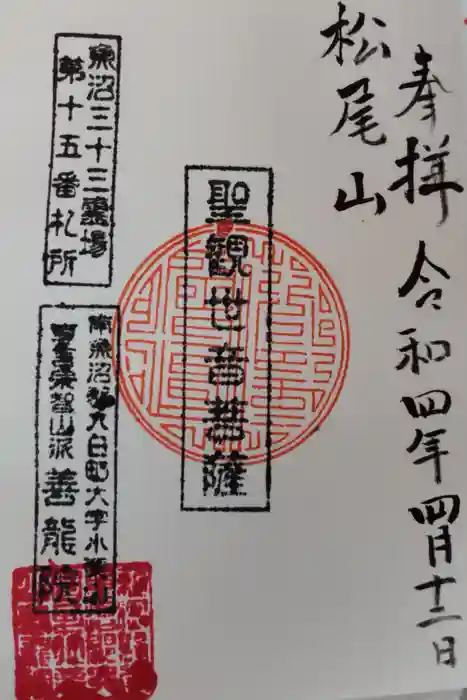 奉拝 令和四年四月十二日
松尾山
聖観世音菩薩
魚沼三十三霊場
第十五番札所
南魚沼郡大和町大字小
真言宗智山派 善龍院